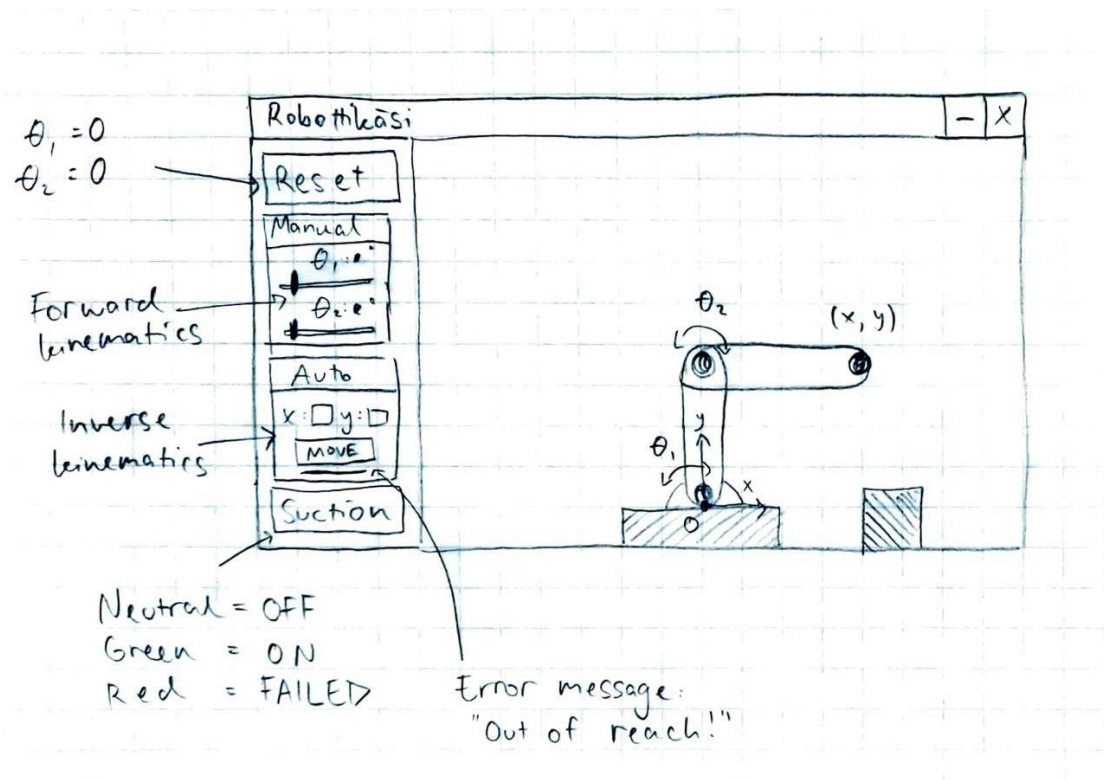 Robottikäsi
- X
θ₁ = 0
θ₂ = 0
Reset
Manual
θ₁:
θ₂:
Forward
kinematics
Auto
x: y:
MOVE
Inverse
kinematics
Suction
θ₂
(x, y)
y
θ₁
x
O
Neutral = OFF
Green = ON
Red = FAILED
Error message:
"Out of reach!"